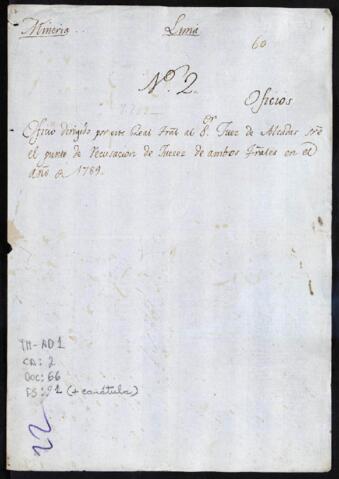 Mineria Lima
60
Nº. 2
Oficios
Oficio dirigido por este Real Tral al Sor Juez de Alzadas sre
el punto de recusacion de Jueces de ambos Trales en el
año de 1789.
TM-AD1
CA: 2
DOC: 66
FS: 1 (+ carátula)
22